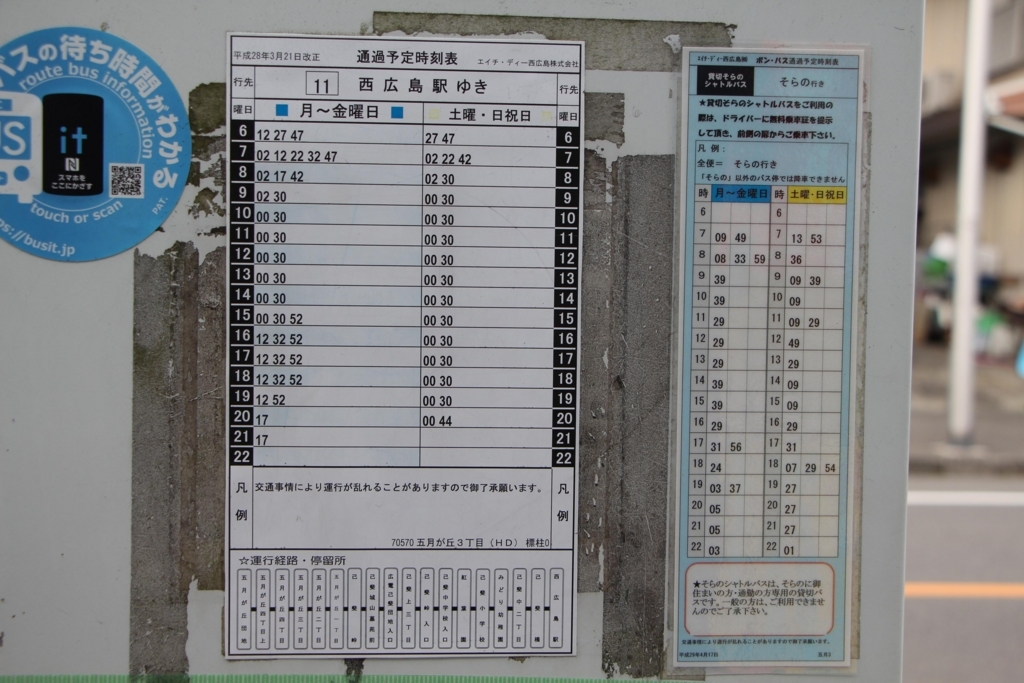 バスの待ち時間がわかる
route bus information
BUS
it
スマホを
ここにかざす
touch or scan
PAT.
https://busit.jp
平成28年3月21日改正 通過予定時刻表 エイチ・ディー西広島株式会社
行先 11 西広島駅 ゆき 行先
曜日 月～金曜日 土曜・日祝日 曜日
6 12 27 47 27 47 6
7 02 12 22 32 47 02 22 42 7
8 02 17 42 02 30 8
9 02 30 00 30 9
10 00 30 00 30 10
11 00 30 00 30 11
12 00 30 00 30 12
13 00 30 00 30 13
14 00 30 00 30 14
15 00 30 52 00 30 15
16 12 32 52 00 30 16
17 12 32 52 00 30 17
18 12 32 52 00 30 18
19 12 52 00 30 19
20 17 00 44 20
21 17 21
22 22
凡例 交通事情により運行が乱れることがありますので御了承願います。 凡例
70570 五月が丘3丁目(HD) 標柱0
☆運行経路・停留所
五月が丘団地
五月が丘四丁目上
五月が丘四丁目
五月が丘三丁目
五月が丘二丁目
五月が丘一丁目
己斐峠
己斐城山墓苑前
広電己斐団地入口
己斐上三丁目
己斐峠入口
己斐中学校入口
紅葉園
己斐小学校
みどり幼稚園
己斐中二丁目
己斐橋
西広島駅
エイチ・ディー西広島㈱ ボン・バス通過予定時刻表
貸切そらの
シャトルバス
そらの行き
★貸切そらのシャトルバスをご利用の
際は、ドライバーに無料乗車証を提示
して頂き、前側の扉からご乗車下さい。
凡例:
全便= そらの行き
「そらの」以外のバス停では降車できません
時 月～金曜日 時 土曜・日祝日
6 6
7 09 49 7 13 53
8 08 33 59 8 36
9 39 9 09 39
10 39 10 09
11 29 11 09 29
12 29 12 49
13 29 13 29
14 39 14 09
15 39 15 09
16 29 16 29
17 31 56 17 31
18 24 18 07 29 54
19 03 37 19 27
20 05 20 27
21 05 21 27
22 03 22 01
★そらのシャトルバスは、そらのに御
住まいの方・通勤の方専用の貸切バ
スです。一般の方は、ご利用できませ
んのでご了承下さい。
交通事情により運行が乱れることがありますので御了承願います。
平成28年4月17日 五月3